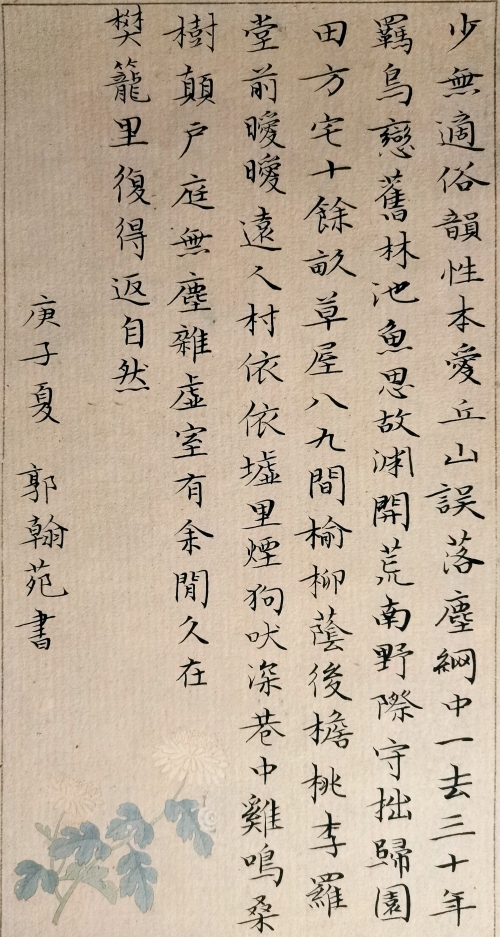 少無適俗韻性本愛丘山誤落塵網中一去三十年
羈鳥戀舊林池魚思故渊開荒南野際守拙歸園
田方宅十餘畝草屋八九間榆柳蔭後檐桃李羅
堂前曖曖遠人村依依墟里煙狗吠深巷中雞鳴桑
樹顛戶庭無塵雜虛室有余閒久在
樊籠里復得返自然
庚子夏 郭翰苑書